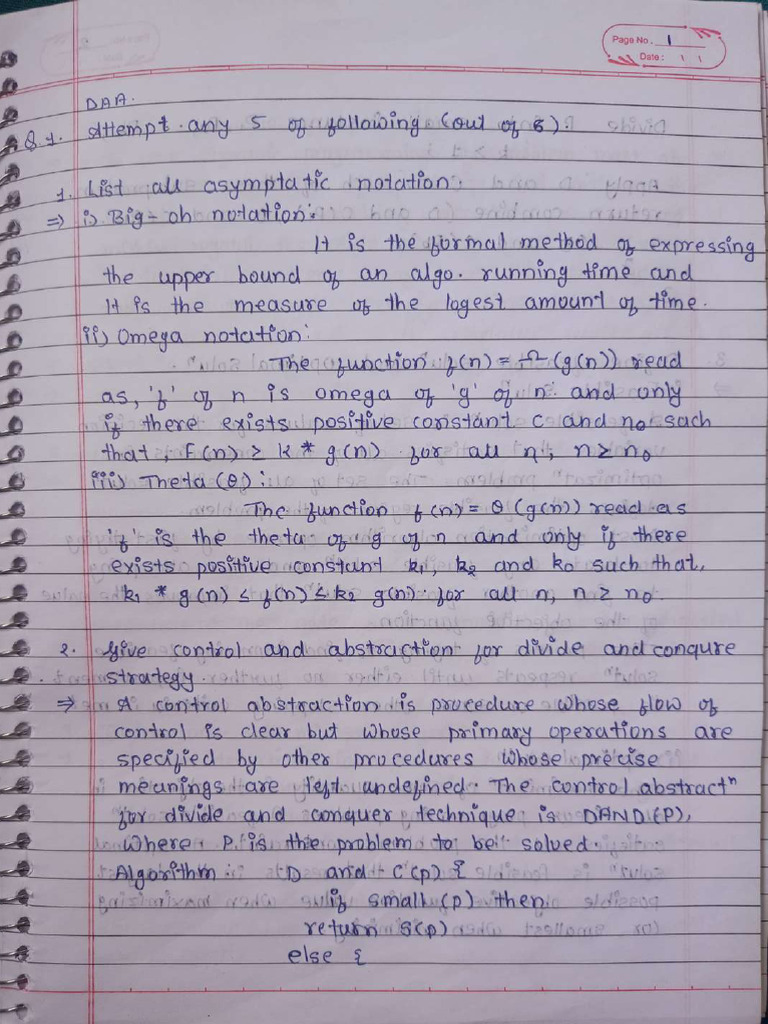 Page No. 1
Date: | |
DAA.
Q.1. Attempt any 5 of following (out of 6).
1. List all asymptatic notation.
⇒ i) Big-oh notation:
It is the formal method of expressing
the upper bound of an algo. running time and
It is the measure of the logest amount of time.
ii) Omega notation:
The function f(n) = Ω (g(n)) read
as, 'f' of n is omega of 'g' of n. and only
if there exists positive constant C and n₀ such
that, F(n) ≥ k * g(n) for all n, n ≥ n₀
iii) Theta (θ):
The function f(n) = θ (g(n)) read as
'f' is the theta of g of n and only if there
exists positive constant k₁, k₂ and k₀ such that,
k₁ * g(n) ≤ f(n) ≤ k₂ g(n) for all n, n ≥ n₀.
2. Give control and abstraction for divide and conqure
strategy.
⇒ A control abstraction is procedure whose flow of
control is clear but whose primary operations are
specified by other procedures whose precise
meanings are left undefined. The control abstractⁿ
for divide and conquer technique is DAND(P),
where P is the problem to be solved.
Algorithm D and C(p) {
if small (p) then
return S(p)
else {